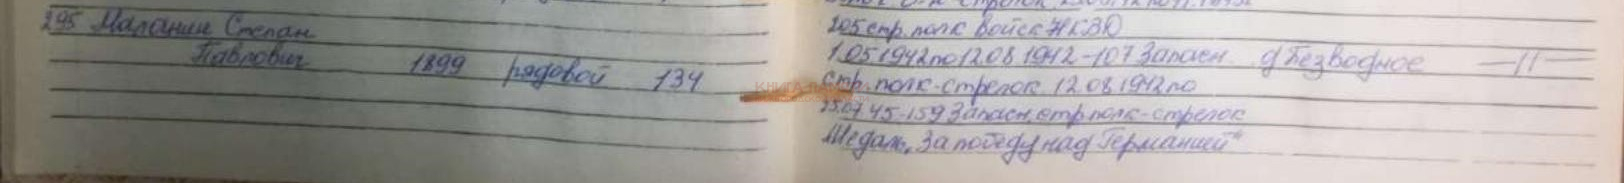 295 Маланин Степан
Павлович 1899 рядовой 134
205 стр. полк войск НКВД
1.05 1942 по 12.08.1942-107 Запасн. д Безводное —11—
стр. полк-стрелок 12.08 1942 по
25.07 45-159 Запасн. стр полк-стрелок
Медаль „За победу над Германией"
КНИГА